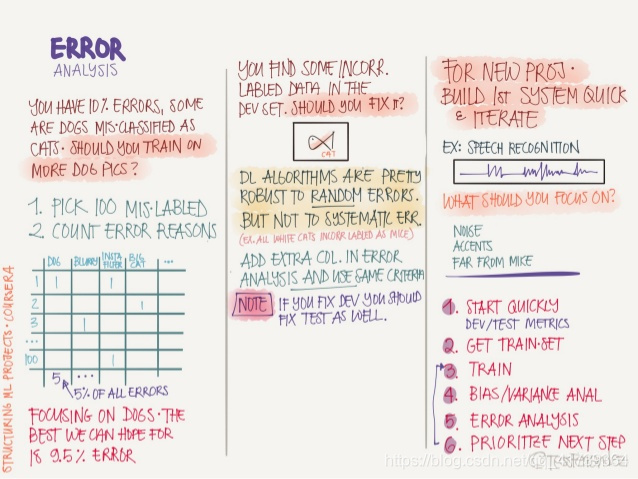 ERROR
ANALYSIS
YOU HAVE 10% ERRORS, SOME
ARE DOGS MIS·CLASSIFIED AS
CATS· SHOULD YOU TRAIN ON
MORE DOG PICS?
1. PICK 100 MIS·LABLED
2 COUNT ERROR REASONS
DOG BLURRY INSTA FILTER BIG CAT ...
1 1 1
2 1
3 1
...
100 1
5 ...
5% OF ALL ERRORS
FOCUSING ON DOGS·THE
BEST WE CAN HOPE FOR
IS 9.5% ERROR
STRUCTURING ML PROJECTS·COURSERA
YOU FIND SOME INCORR.
LABLED DATA IN THE
DEV SET. SHOULD YOU FIX IT?
CAT
DL ALGORITHMS ARE PRETTY
ROBUST TO RANDOM ERRORS.
BUT NOT TO SYSTEMATIC ERR.
(EX. ALL WHITE CATS INCORR LABLED AS MICE)
ADD EXTRA COL. IN ERROR
ANALYSIS AND USE SAME CRITERIA
NOTE IF YOU FIX DEV YOU SHOULD
FIX TEST AS WELL.
FOR NEW PROJ·
BUILD 1st SYSTEM QUICK
& ITERATE
EX: SPEECH RECOGNITION
WHAT SHOULD YOU FOCUS ON?
NOISE
ACCENTS
FAR FROM MIKE
1. START QUICKLY
DEV/TEST METRICS
2. GET TRAIN·SET
3. TRAIN
4. BIAS/VARIANCE ANAL
5. ERROR ANALYSIS
6. PRIORITIZE NEXT STEP